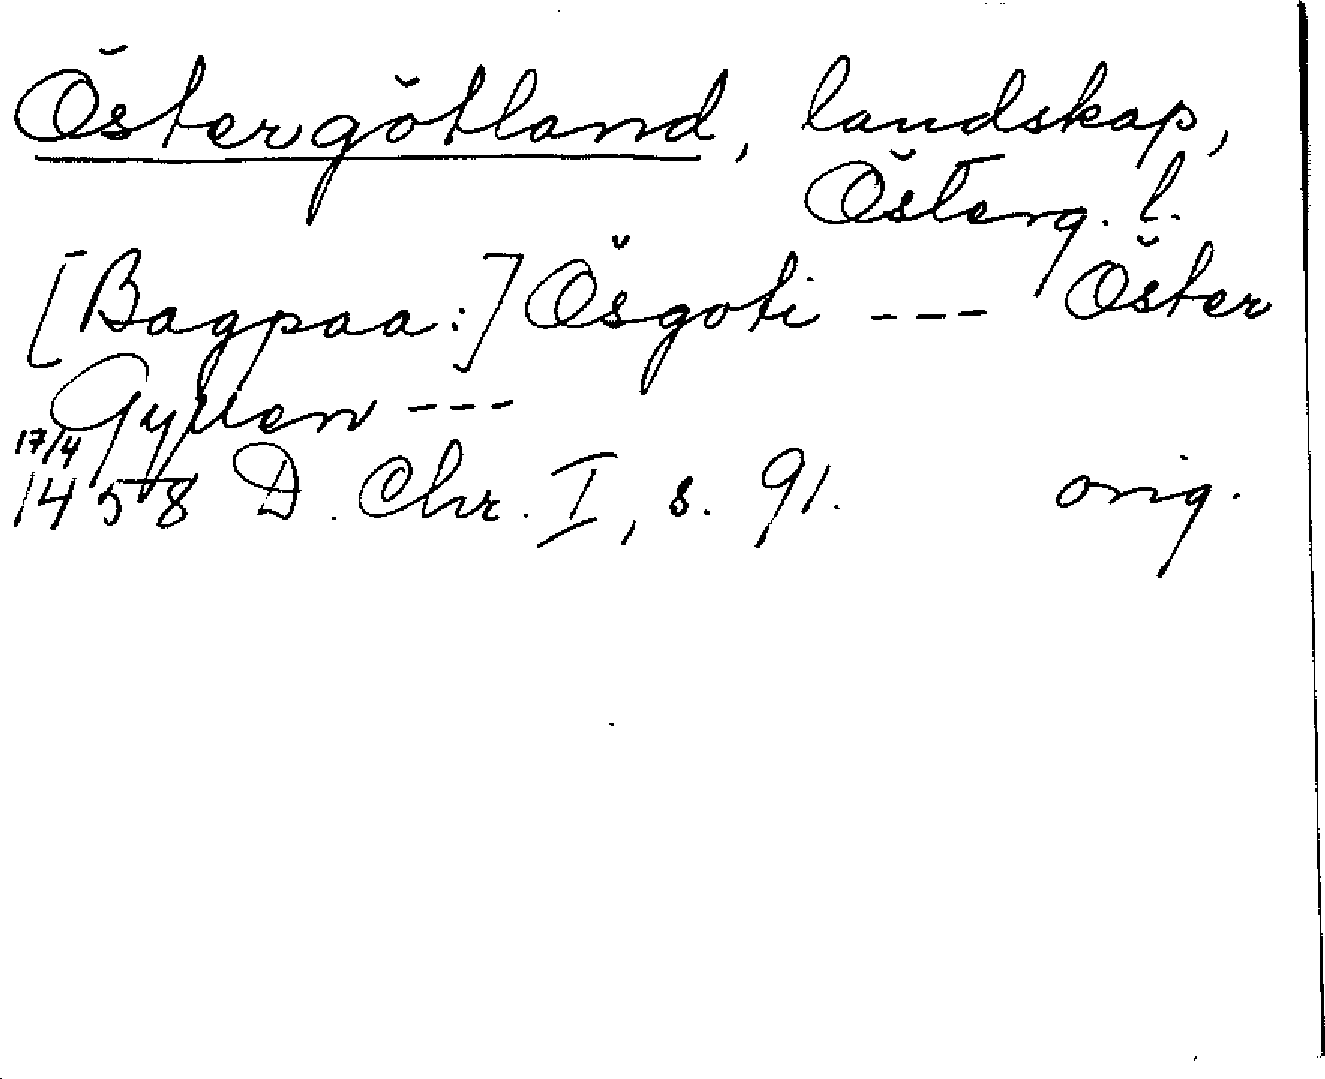 Östergötland, landskap,
Österg. l.
[Bagpaa:] Ösgoti --- Öster
Gyllen ---
17/4
1458 D. Chr. I, s. 91. orig.